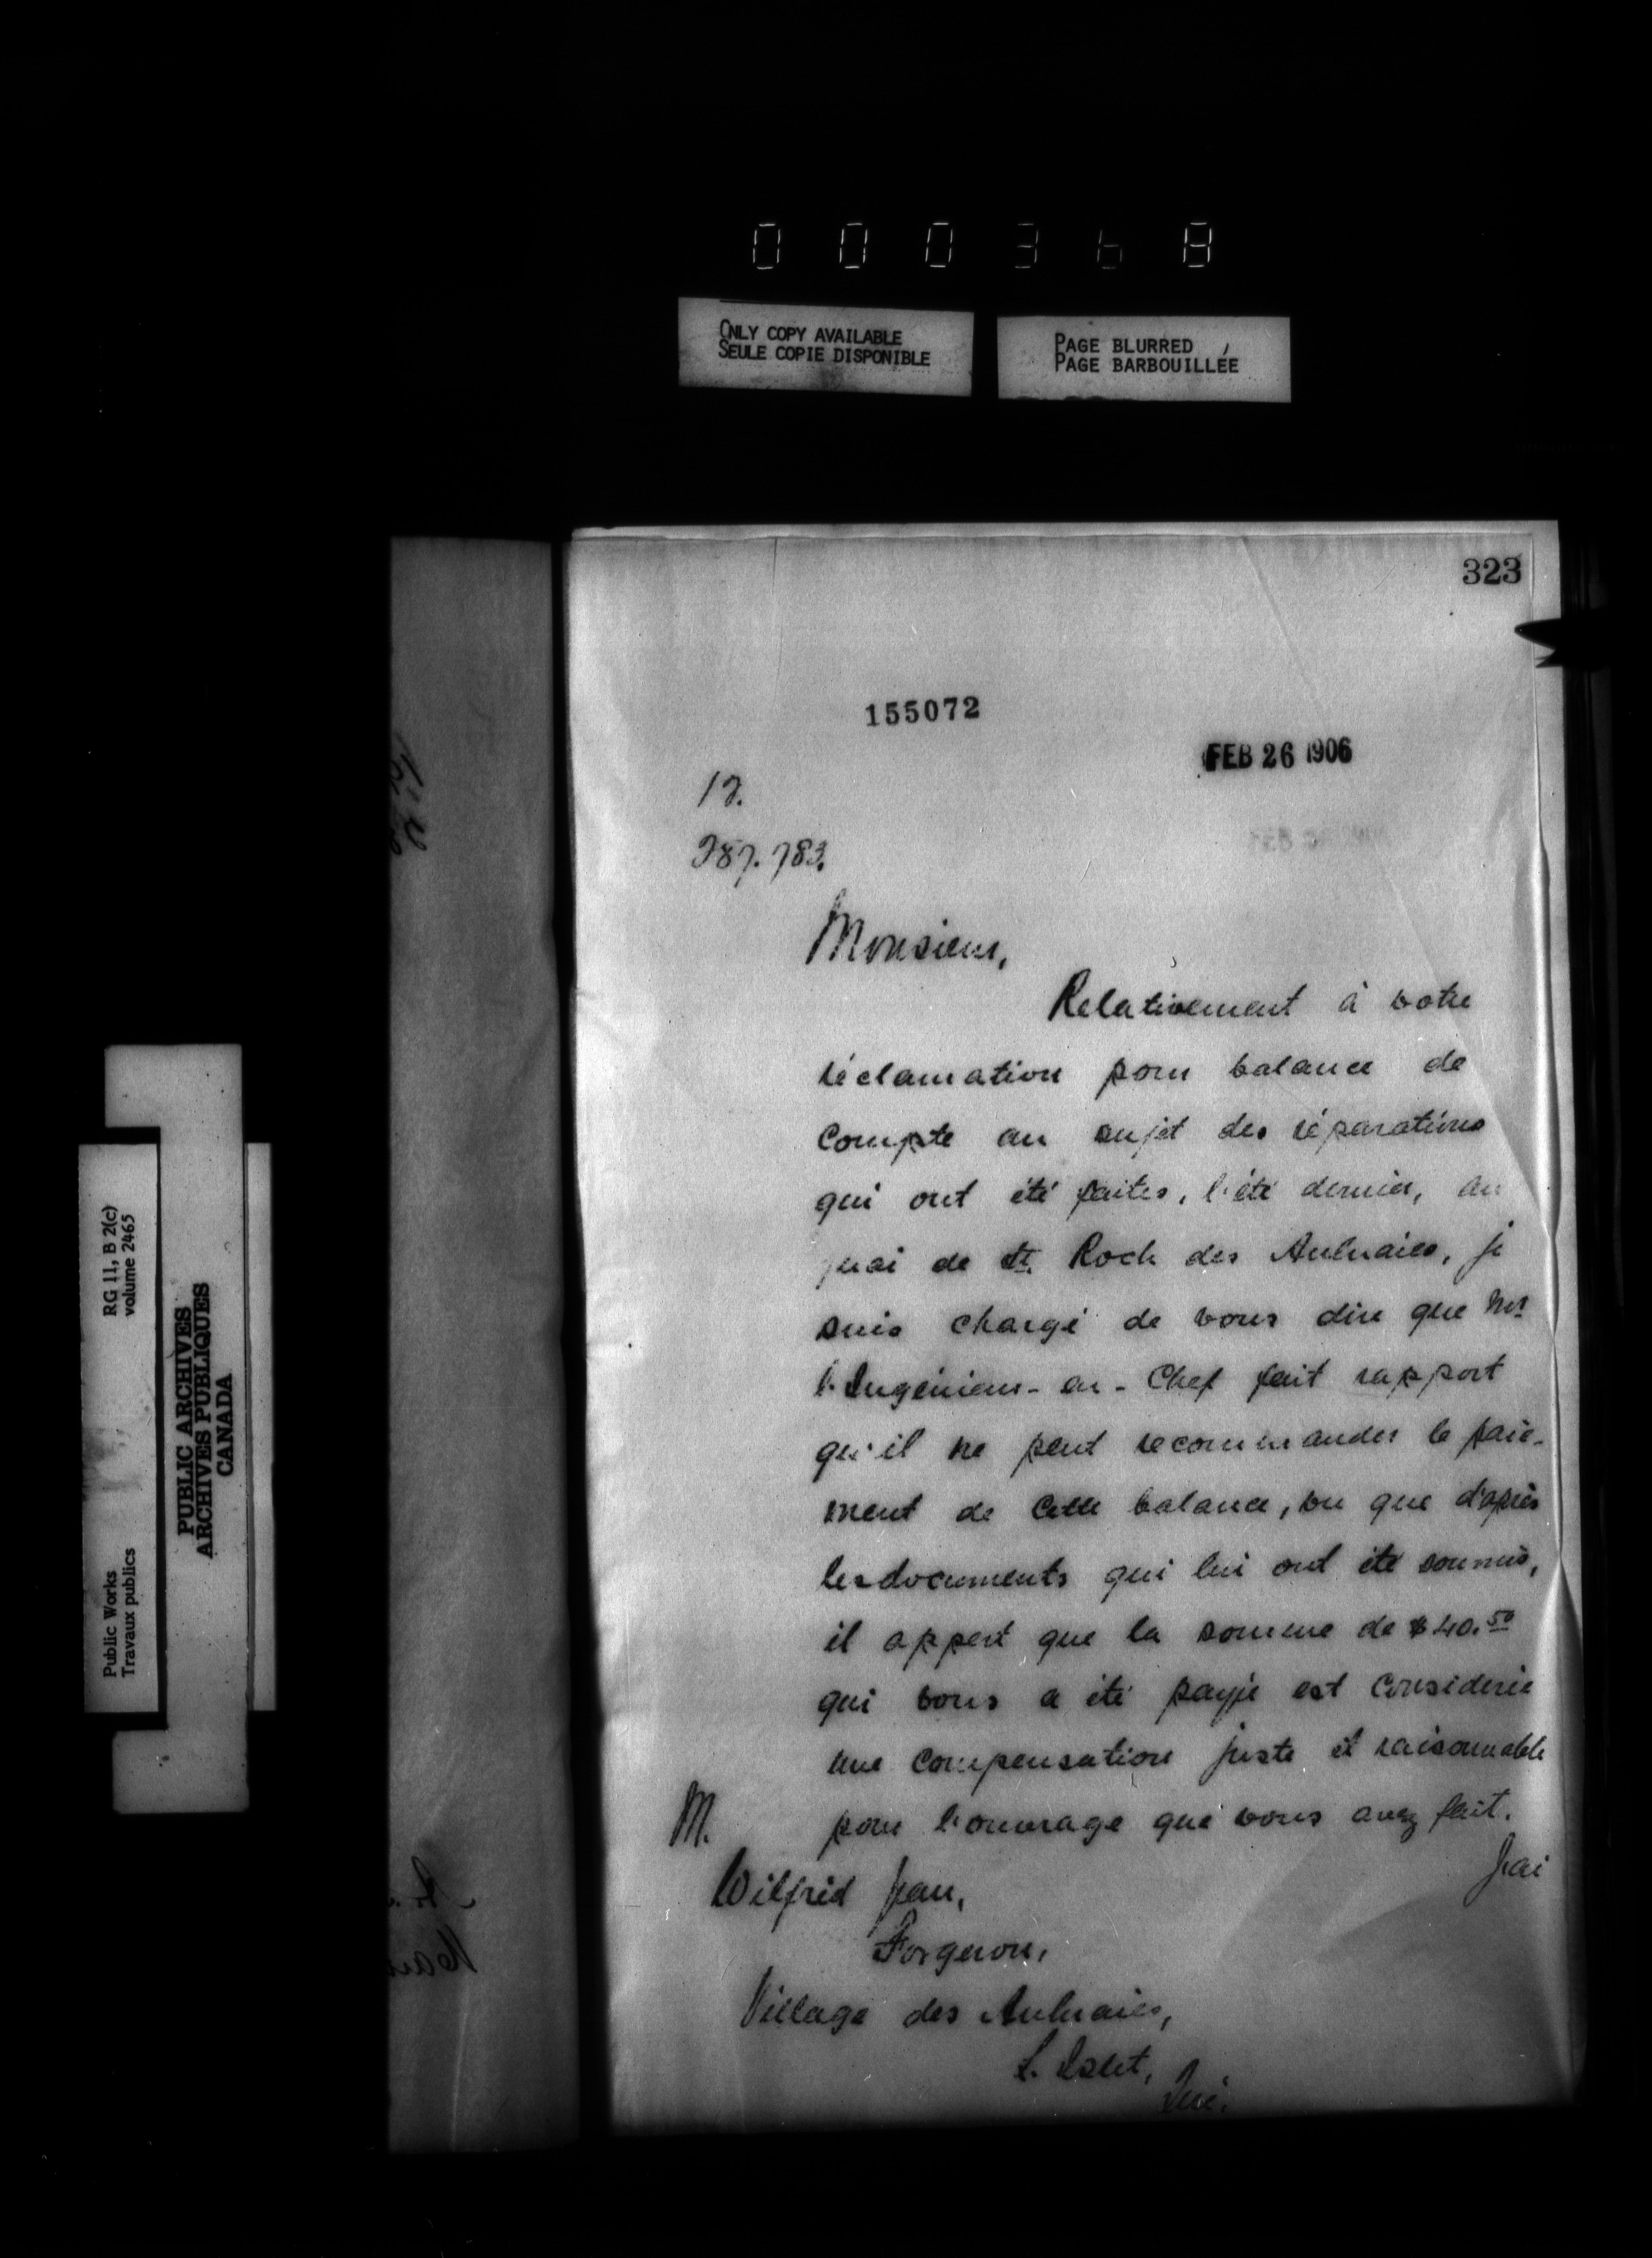 000368
ONLY COPY AVAILABLE
SEULE COPIE DISPONIBLE
PAGE BLURRED
PAGE BARBOUILLÉE
323
155072
FEB 26 1906
287.783.
Monsieur,
Relativement à votre
réclamation pour balance de
compte au sujet des réparations
qui ont été faites, l'été dernier, au
quai de St. Roch des Aulnaies, je
suis chargé de vous dire que Mr
l'Ingénieur-en-Chef fait rapport
qu'il ne peut recommander le paie-
ment de cette balance, vu que d'après
les documents qui lui ont été soumis,
il appert que la somme de $40.50
qui vous a été payée est considérée
une compensation juste et raisonnable
pour l'ouvrage que vous avez fait.
J'ai
M.
Wilfrid Jean,
Forgeron,
Village des Aulnaies,
L'Islet,
Qué.
RG 11, B 2(c)
volume 2465
PUBLIC ARCHIVES
ARCHIVES PUBLIQUES
CANADA
Public Works
Travaux publics